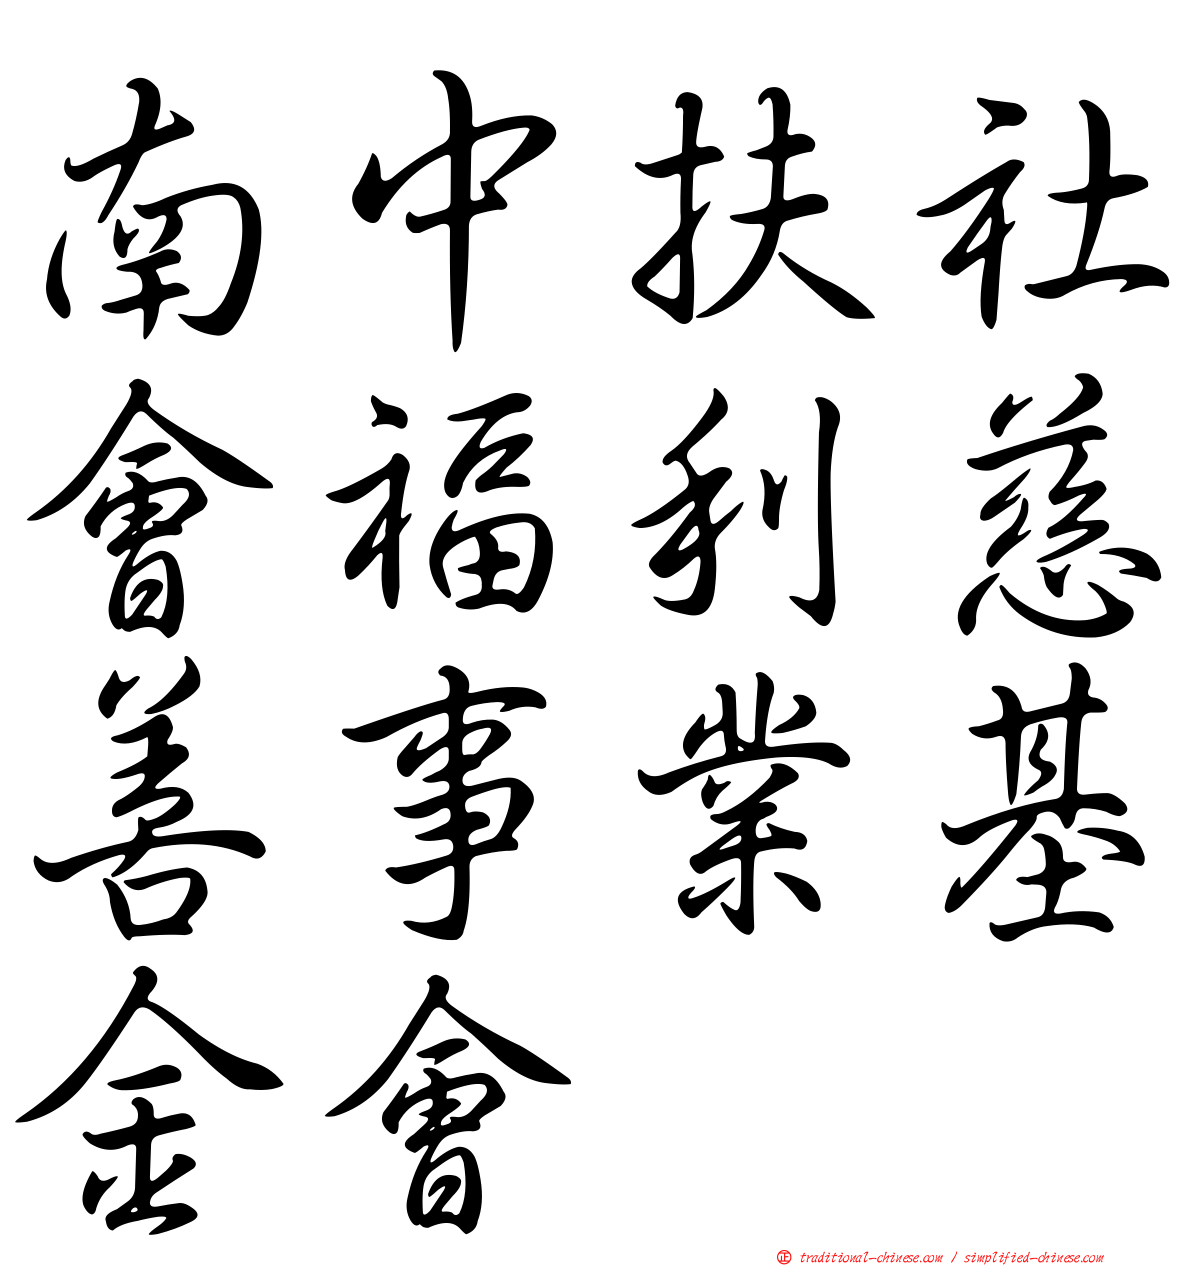 南中扶社
會福利慈
善事業基
金會
正 traditional-chinese.com / simplified-chinese.com